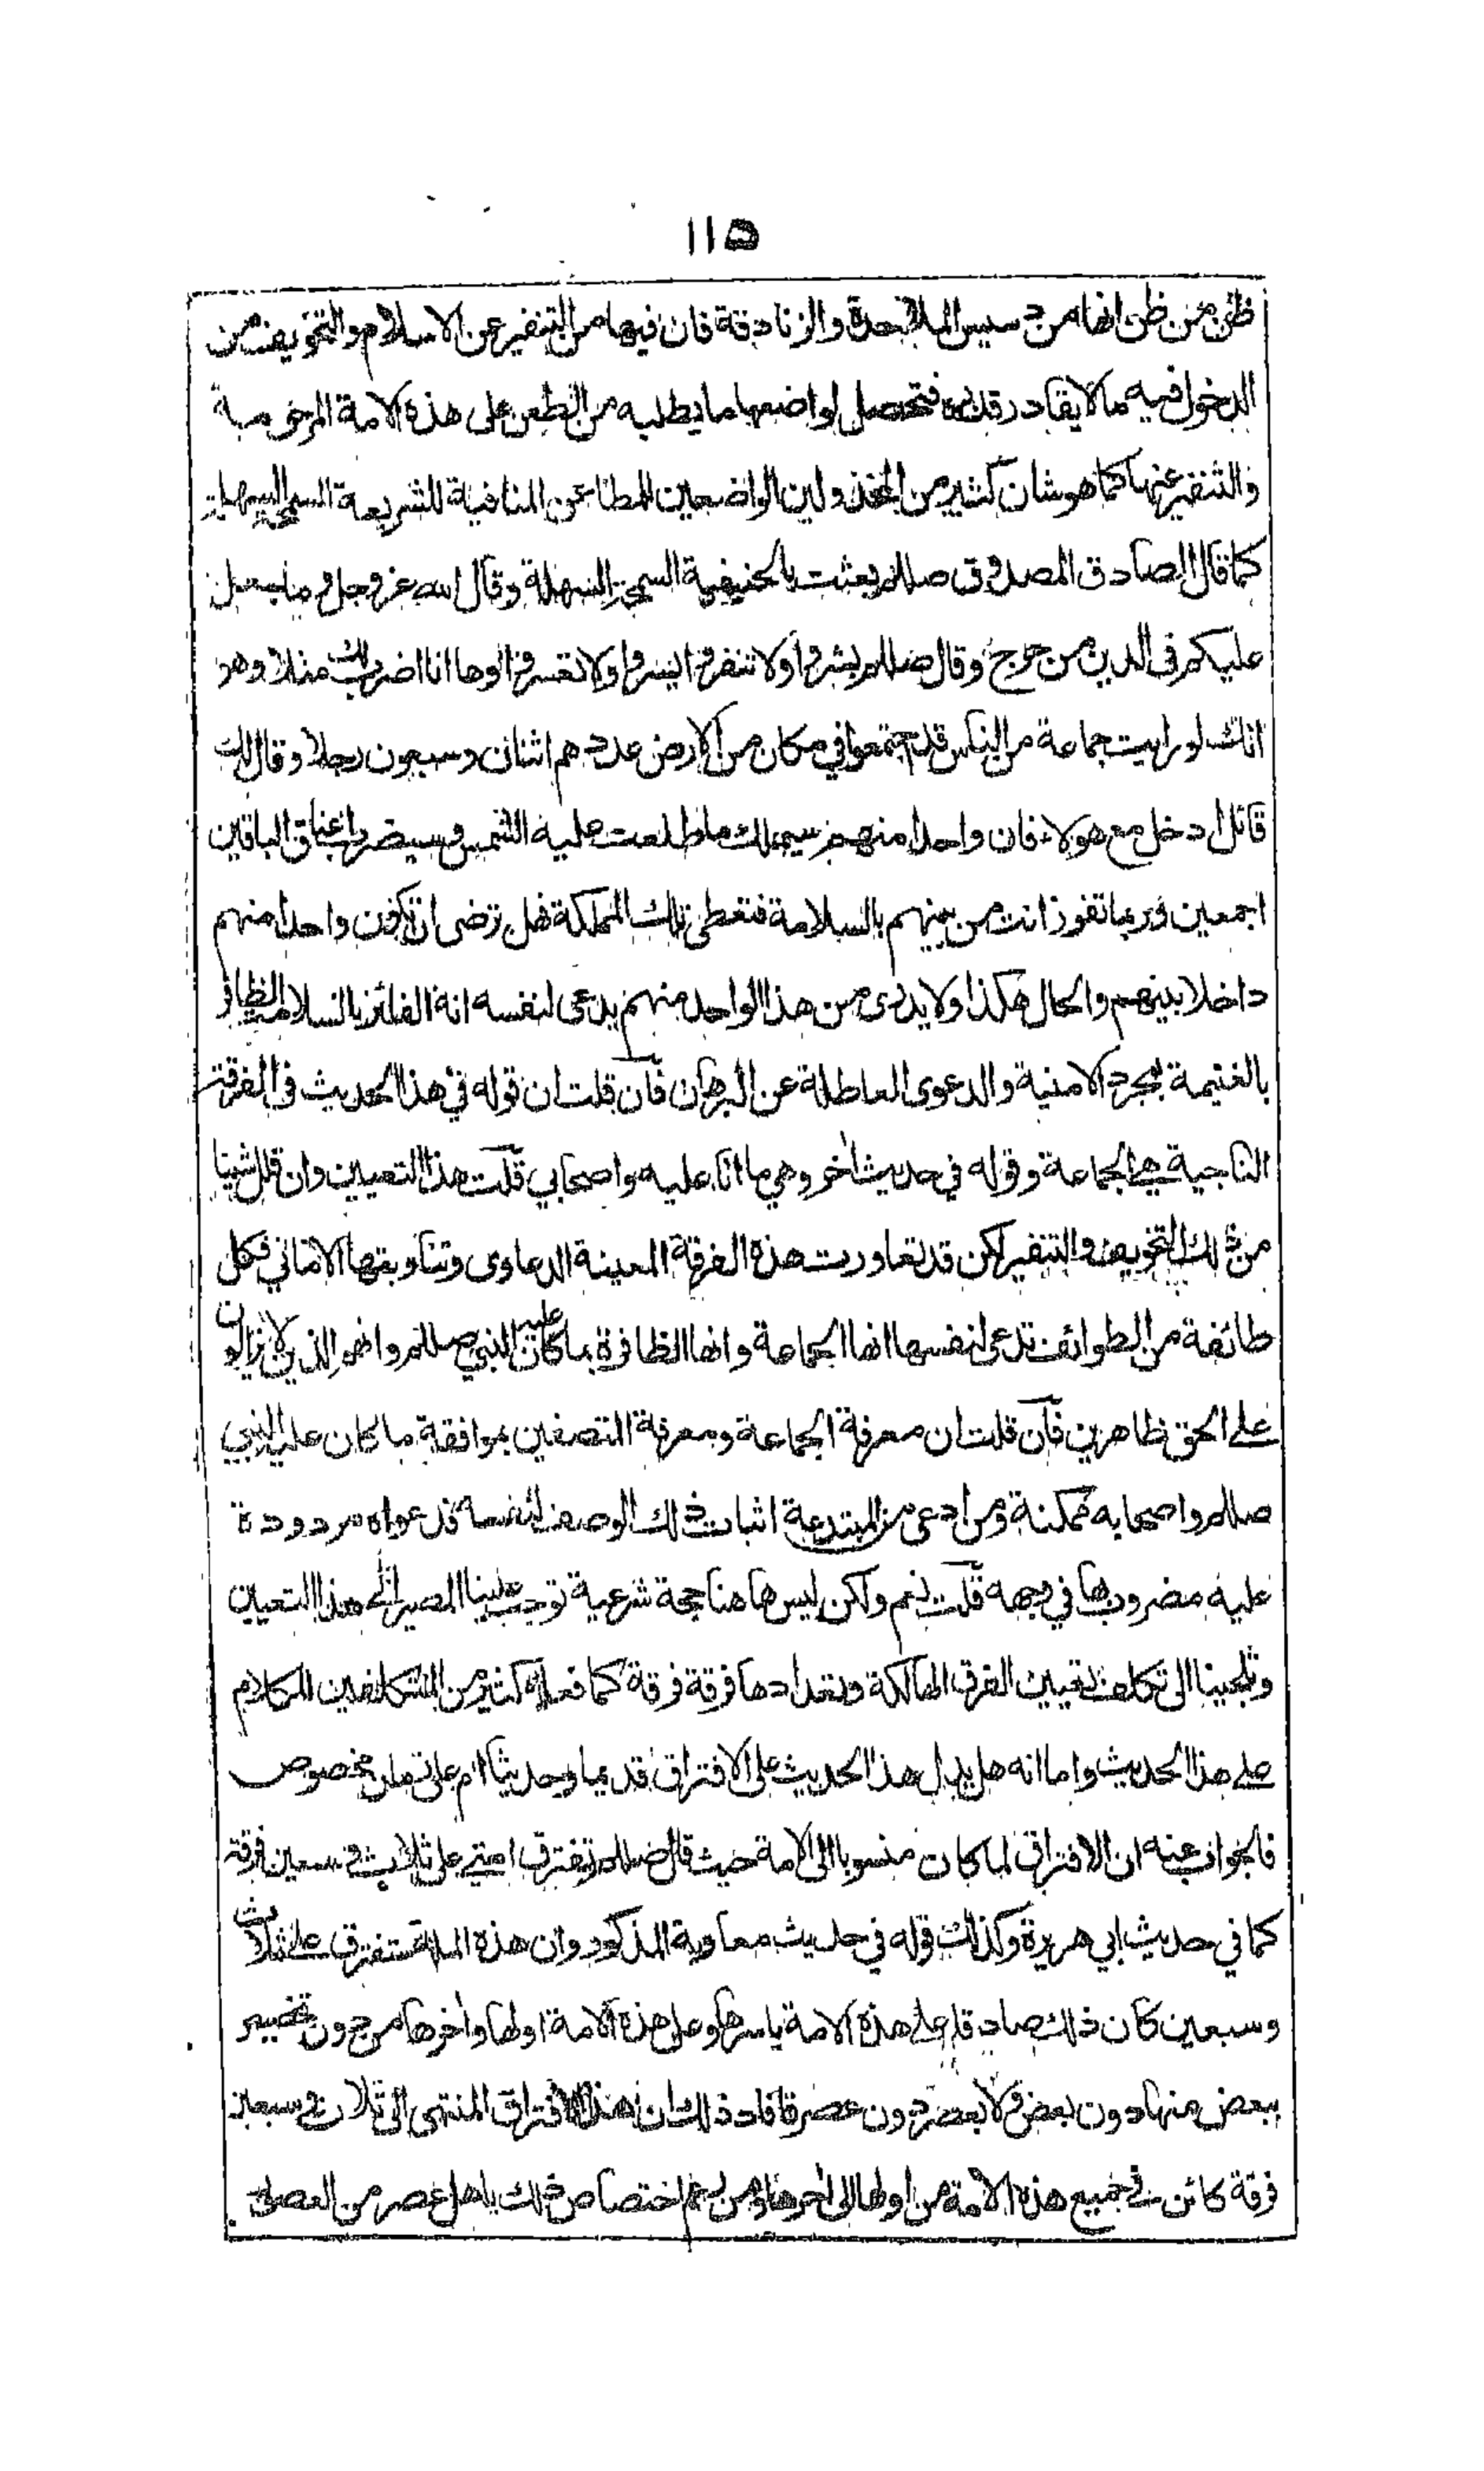 ١١٥
ظن من ظن انها من دسيس الملاحدة والزنادقة فان فيها من التنفير عن الاسلام والتخويف من
الدخول فيه ما لا يقادر قدره فتحصل لواضعها ما يطلبه من الطعن على هذه الامة المرحومة
والتنفير عنها كما هو شان كثير من المخذولين الواضعين للمطاعن المنافية للشريعة السمحة السهلة
كما قال الصادق المصدوق صللم بعثت بالحنيفية السمحة السهلة وقال الله عز وجل وما جعل
عليكم في الدين من حرج وقال صللم بشروا ولا تنفروا يسروا ولا تعسروا وها انا اضرب لك مثلا وهو
انك لو رايت جماعة من الناس قد اجتمعوا في مكان من الارض عددهم اثنان وسبعون رجلا وقال لك
قائل ادخل مع هولاء فان واحدا منهم سيملك ما طلعت عليه الشمس وسيضرب اعناق الباقين
اجمعين وربما تفوز انت من بينهم بالسلامة فتعطى تلك المملكة فهل ترضى ان تكون واحدا منهم
داخلا بينهم والحال هكذا ولا يدرى من هذا الواحد منهم يدعى لنفسه انه الفائز بالسلامة الظافر
بالغنيمة بمجرد الامنية والدعوى العاطلة عن البرهان فان قلت ان قوله في هذا الحديث في الفرقة
الناجية هي الجماعة وقوله في حديث اخر وهي ما انا عليه واصحابي قلت هذا التعيين وان قلل شيئا
من ذلك التخويف والتنفير لكن قد تعاورت هذه الفرقة المعينة الدعاوى وتناوبتها الاماني فكل
طائفة من الطوائف تدعى لنفسها انها الجماعة وانها الظافرة بما كان عليه النبي صللم وانهم الذين لا يزالون
على الحق ظاهرين فان قلت ان معرفة الجماعة ومعرفة المتصفين بموافقة ما كان عليه النبي
صللم واصحابه ممكنة ومن ادعى من المبتدعة اثبات ذلك الوصف لنفسه فدعواه مردودة
عليه مضروب بها في وجهه قلت نعم ولكن ليس ها هنا حجة شرعية توجب علينا المصير الى هذا التعيين
وتلجينا الى تكلف تعيين الفرق الهالكة وتعدادها فرقة فرقة كما فعله كثير من المتكلفين للكلام
على هذا الحديث واما انه هل يدل هذا الحديث على الافتراق قديما وحديثا ام على زمان مخصوص
فالجواب عنه ان الافتراق لما كان منسوبا الى الامة حيث قال صللم تفترق امتي على ثلاث وسبعين فرقة
كما في حديث ابي هريرة وكذلك قوله في حديث معاوية المذكور وان هذه الملة ستفترق على ثلاث
وسبعين كان ذلك صادقا على هذه الامة باسرها وعلى هذه الامة اولها واخرها من دون تخصيص
ببعض منها دون بعض ولا بعصر دون عصر فافاد ذلك ان هذا الافتراق المنتهى الى ثلاث وسبعين
فرقة كائن في جميع هذه الامة من اولها الى اخرها ومن زعم اختصاص ذلك باهل عصر من العصور